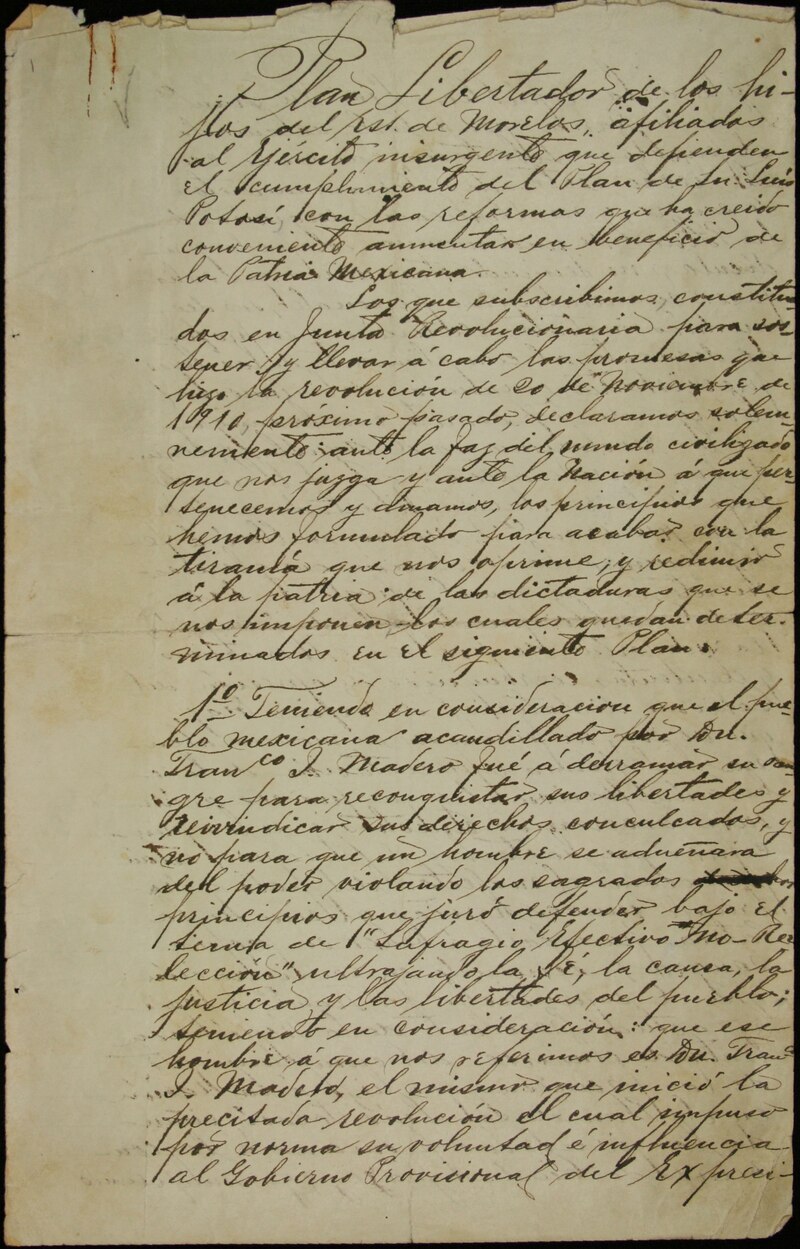 Plan Libertador de los hi-
jos del Est. de Morelos, afiliados
al Ejército insurgente que defienden
el cumplimiento del Plan de Sn. Luis
Potosí con las reformas que ha creido
conveniente aumentar en beneficio de
la Patria Mexicana.
Los que subscribimos, constitui-
dos en Junta Revolucionaria para sos-
tener y llevar á cabo las promesas que
hizo la revolución de 20 de Noviembre de
1910, próximo pasado, declaramos solem-
nemente ante la faz del mundo civilizado
que nos juzga y ante la Nación á que per-
tenecemos y amamos, los principios que
hemos formulado para acabar con la
tiranía que nos oprime, y redimir
á la patria de las dictaduras que se
nos imponen los cuales quedan deter-
minados en el siguiente Plan:
1º Teniendo en consideracion que el pue-
blo mexicano acaudillado por Dn.
Franco I. Madero fué á derramar su san-
gre para reconquistar sus libertades y
reivindicar sus derechos conculcados, y
no para que un hombre se adueñara
del poder violando los sagrados
principios que juró defender bajo el
tema de "Sufragio Efectivo No-Re-
lección" ultrajando la fé, la causa, la
justicia y las libertades del pueblo;
teniendo en consideración: que ese
hombre á que nos referimos es Dn. Franco
I. Madero, el mismo que inició la
precitada revolución el cual impuso
por norma su voluntad é influencia
al Gobierno Provisional del Ex presi-